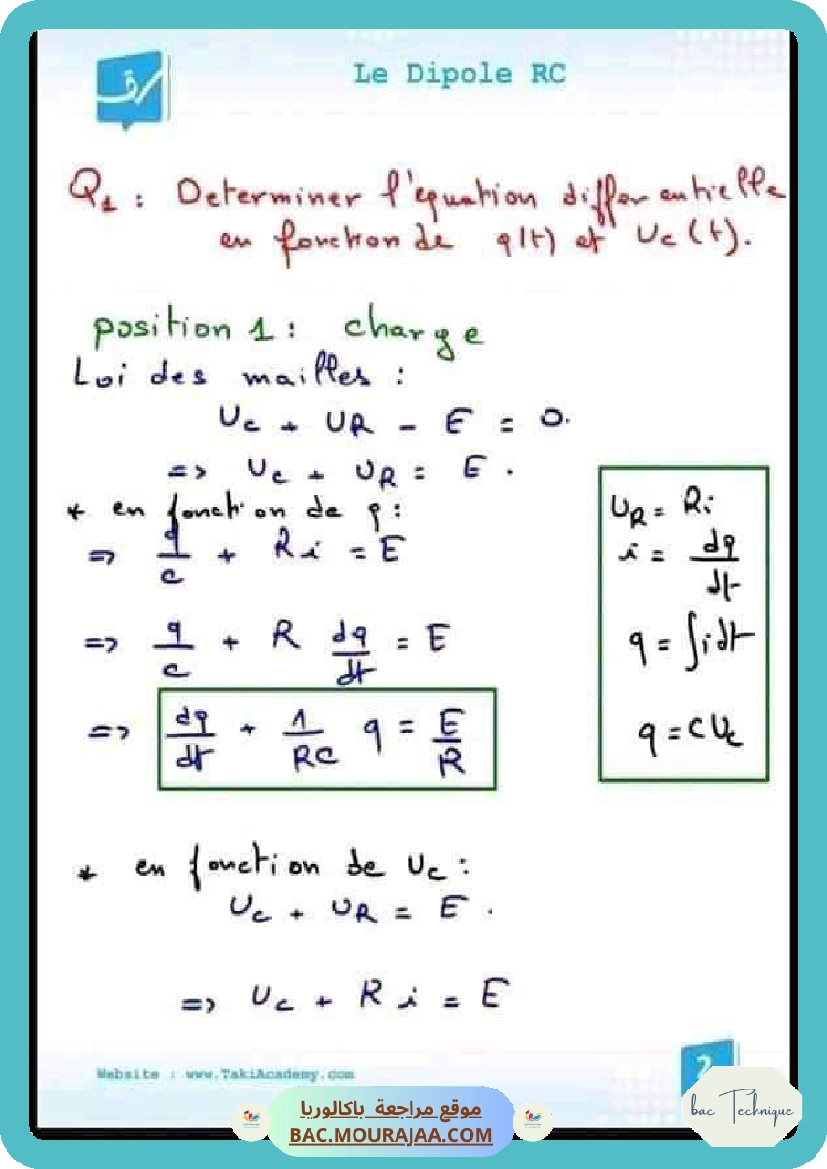 Le Dipole RC
Q1 : Determiner l'equation differentielle
en fonction de q(t) et Uc(t).
position 1 : charge
Loi des mailles :
Uc + UR - E = 0.
=> Uc + UR = E .
* en fonction de q :
=> q/c + Ri = E
=> q/c + R dq/dt = E
=> dq/dt + 1/RC q = E/R
UR = Ri
i = dq/dt
q = ∫idt
q = CUc
* en fonction de Uc :
Uc + UR = E .
=> Uc + Ri = E
Website : www.TakiAcademy.com
2
bac Technique
موقع مراجعة باكالوريا
BAC.MOURAJAA.COM